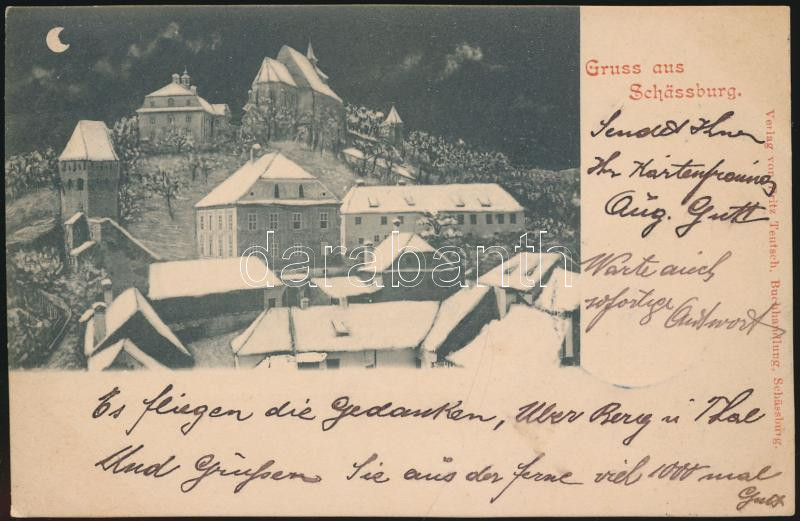 Gruss aus
Schässburg.
Sendet Ihnen
Ihr Kartenfreund
Aug. Gutt
Warte auch
sofortige
Antwort
Verlag von Fritz Teutsch, Buchhandlung, Schässburg.
darabanth
Es fliegen die Gedanken, Über Berg u Thal
Und Grüssen Sie aus der ferne viel 1000 mal
Gutt